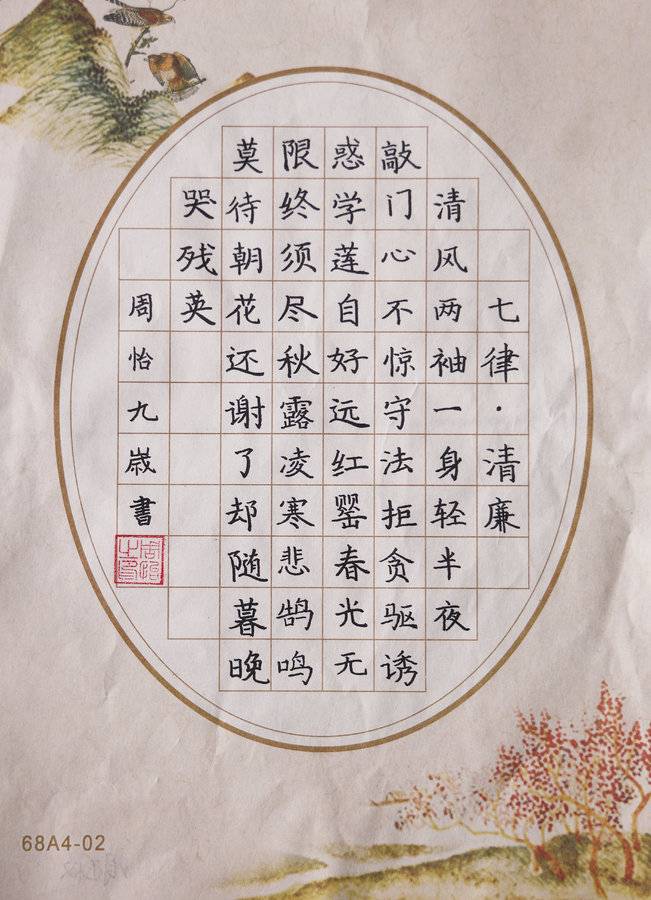 七律·清廉
清风两袖一身轻半夜
敲门心不惊守法拒贪驱诱
惑学莲自好远红罂春光无
限终须尽秋露凌寒悲鹄鸣
莫待朝花还谢了却随暮晚
哭残英
周怡九嵗書
周怡之印
68A4-02